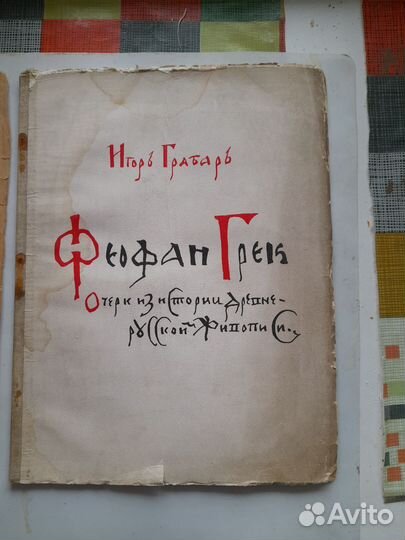 Игорь Грабарь
Феофан Грек
Очерк из истории древне-
русской живописи
Avito